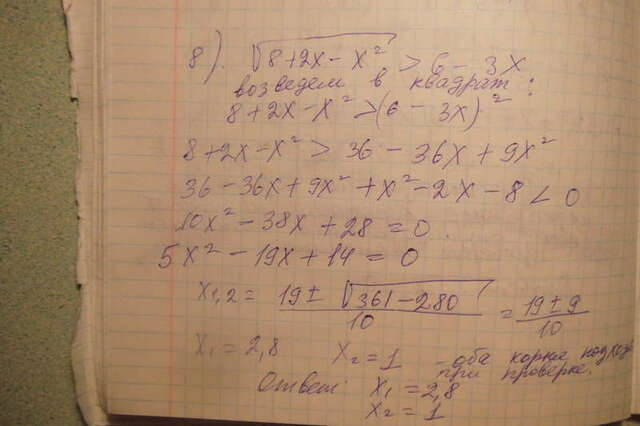 8). √(8+2x-x²) > 6-3x
возведем в квадрат:
8+2x-x² >(6-3x)²
8+2x-x² > 36-36x+9x²
36-36x+9x²+x²-2x-8<0
10x²-38x+28=0
5x²-19x+14=0
x₁,₂ = (19±√(361-280))/10 = (19±9)/10
x₁=2,8 x₂=1 - оба корня подход
при проверке.
Ответ: x₁=2,8
x₂=1